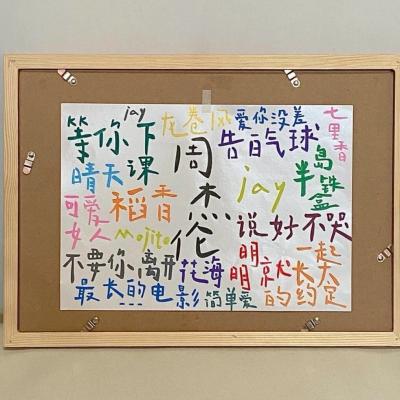 jay
龙卷风
爱你没差
七里香
等你下课
周杰伦
告白气球
半岛铁盒
晴天
稻香
jay
可爱女人
mojito
说好不哭
不要你离开
花海
明明就
一起长大的约定
最长的电影
简单爱